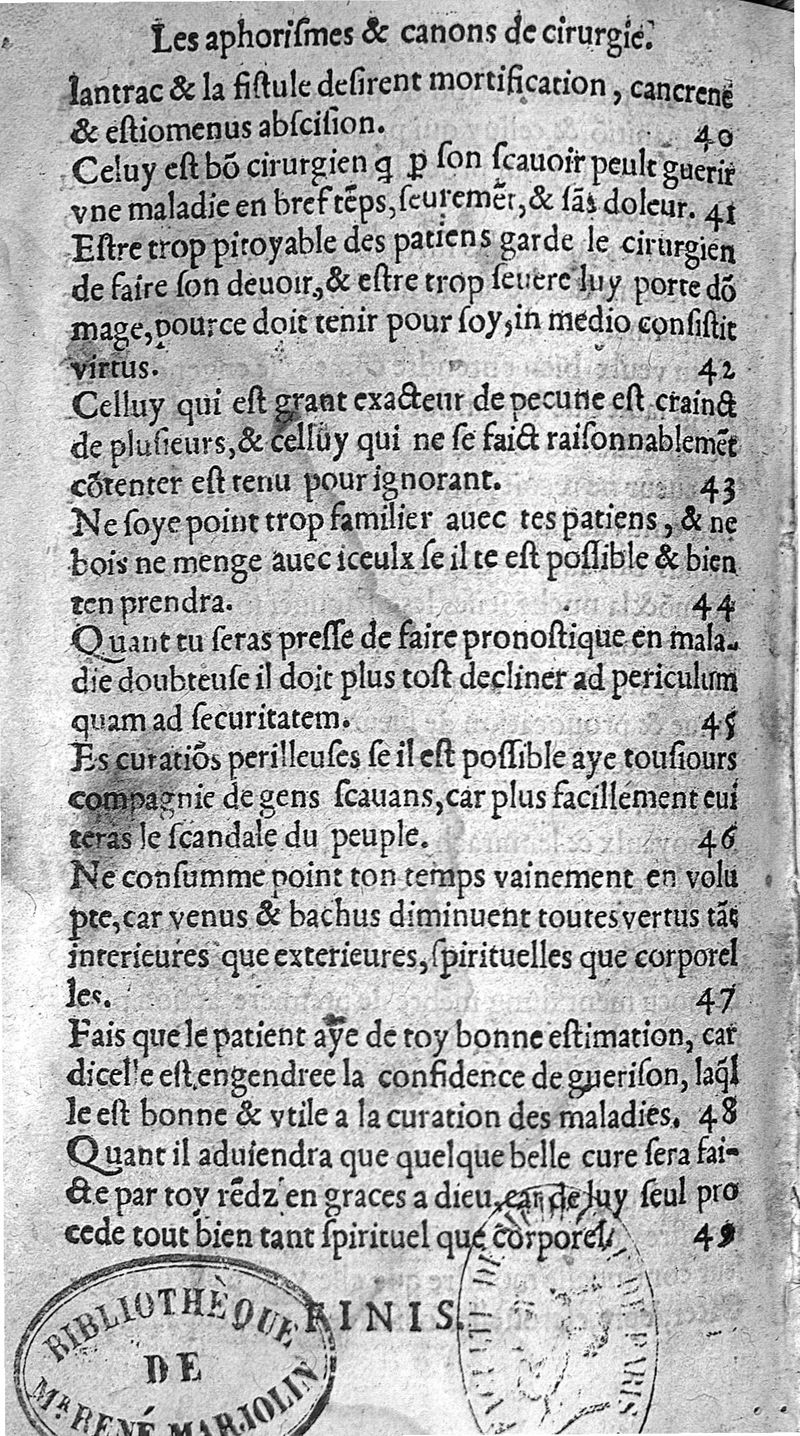 Les aphoriſmes & canons de cirurgie.
lantrac & la fiſtule deſirent mortification, cancrene
& eſtiomenus abſciſion. 40
Celuy eſt bõ cirurgien ꝗ ꝑ ſon ſcauoir peult guerir
vne maladie en bref tẽps, ſeuremẽt, & ſãs doleur. 41
Eſtre trop pitoyable des patiens garde le cirurgien
de faire ſon deuoir, & eſtre trop ſeuere luy porte dõ
mage, pource doit tenir pour ſoy, in medio conſiſtit
virtus. 42
Celluy qui eſt grant exacteur de pecune eſt crainct
de pluſieurs, & celluy qui ne ſe faict raiſonnablemẽt
cõtenter eſt tenu pour ignorant. 43
Ne ſoye point trop familier auec tes patiens, & ne
bois ne menge auec iceulx ſe il te eſt poſſible & bien
ten prendra. 44
Quant tu ſeras preſſe de faire pronoſtique en mala-
die doubteuſe il doit plus toſt decliner ad periculum
quam ad ſecuritatem. 45
Es curatiõs perilleuſes ſe il eſt poſſible aye touſiours
compagnie de gens ſcauans, car plus facillement eui
teras le ſcandale du peuple. 46
Ne conſumme point ton temps vainement en volu
pte, car venus & bachus diminuent toutes vertus tãt
interieures que exterieures, ſpirituelles que corporel
les. 47
Fais que le patient aye de toy bonne eſtimation, car
dicelle eſt engendree la confidence de gueriſon, laq̃l
le eſt bonne & vtile a la curation des maladies. 48
Quant il aduiendra que quelque belle cure ſera fai-
cte par toy rẽdz en graces a dieu, car de luy ſeul pro
cede tout bien tant ſpirituel que corporel. 49
FINIS.
BIBLIOTHÈQUE
DE
Mr. RENÉ MARJOLIN
DE PARIS